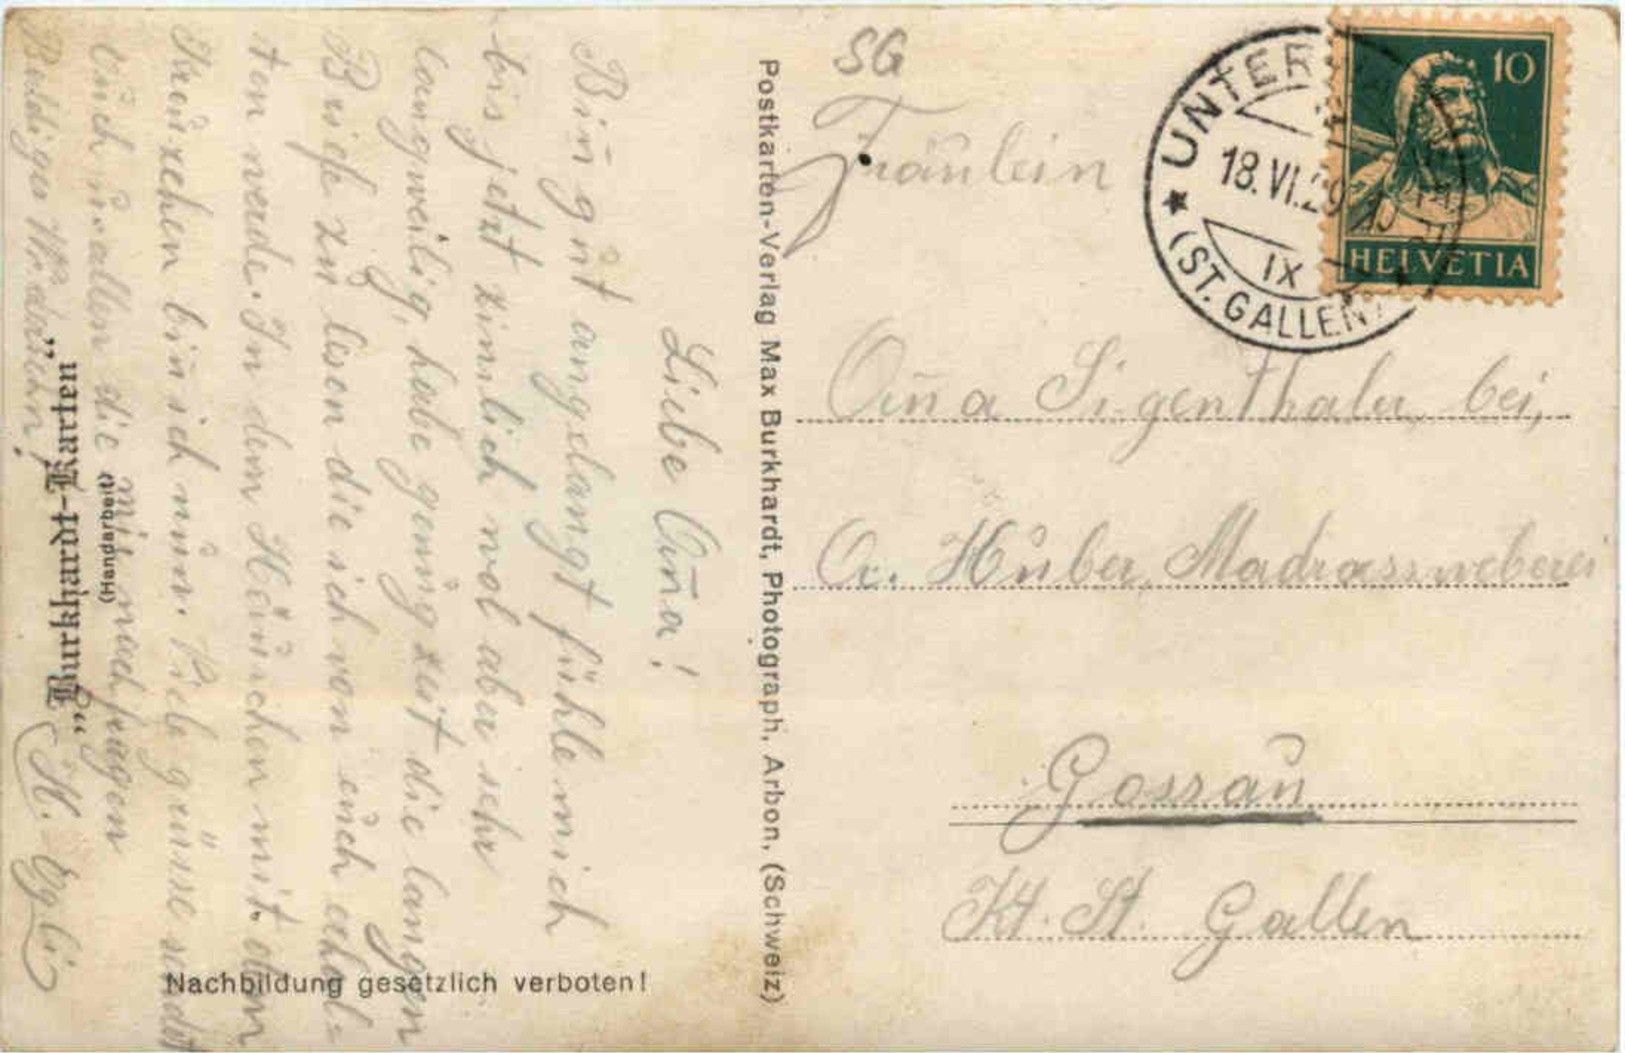 Liebe Anna!
Bin gut angelangt fühle mich
bis jetzt zimlich wol aber sehr
langweilig, habe genug zeit die langen
Briefe zu lesen die ich von euch erhal-
ten werde. In dem Häuschen mit dem
Kreuzchen bin ich nun. Viele grüsse sendet
Euch allen die mir nach fragen
Baldiges Widersehn!
H. Egli
"Burkhardt-Karten"
(Handarbeit)
Nachbildung gesetzlich verboten!
Postkarten-Verlag Max Burkhardt, Photograph, Arbon, (Schweiz)
SG
Fräulein
Anna Sigenthaler, bei,
A. Huber, Madrassweberei
Gossau
Kt. St. Gallen
UNTER
18.VI.29
IX
(ST. GALLEN)
10
HELVETIA